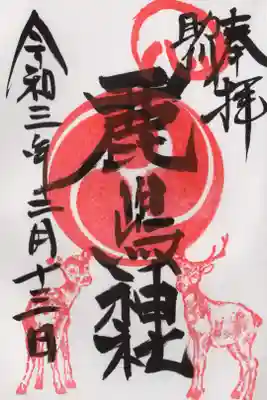 奉拝
鹿島神社
令和三年十二月十三日